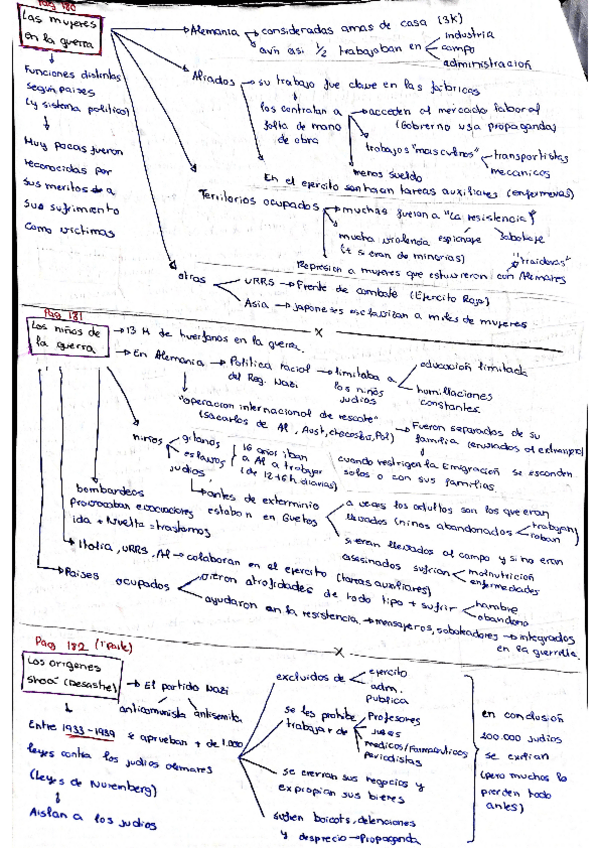 Pag 180
Las mujeres
en la guerra
Funciones distintas
según países
(y sistema político)
Muy pocas fueron
reconocidas por
sus meritos o a
sus sufrimiento
como víctimas
Alemania
consideradas amas de casa (3K)
aún así 1/2 trabajaban en
industria
campo
administración
Aliados
su trabajo fue clave en las fábricas
los contratan a
falta de mano
de obra
acceden al mercado laboral
(Gobierno usa propaganda)
trabajos "masculinos"
transportistas
mecanicos
menos sueldo
En el ejercito sonhacen tareas auxiliares (enfermeras)
Territorios ocupados
muchas fueron a "La resistencia"
espionaje
sabotaje
mucha violencia
(+ si eran de minorías)
"traidoras"
Represión a mujeres que estuvieron con Alemanes
otras
URRS → Frente de combate (Ejercito Rojo)
Asia → japoneses esclavizan a miles de mujeres
Pag 181
Los niños de
la guerra
13 M de huerfanos en la guerra.
En Alemania → Política racial
del Reg. Nazi
limitaba a
los niños
judíos
educación limitada
humillaciones
constantes
"operacion internacional de rescate"
(sacarlos de Al, Aust, checoslov, Pol)
Fueron separados de su
familia (enviados al extranjero)
cuando restrigen la Emigración se esconden
solos o con sus familias
niños
gitanos
eslavos
judíos
16 años iban
a Al a trabajar
(de 12-16h diarias)
antes de exterminio
estaban en Guetos
a veces los adultos son los que eran
llevados (niños abandonados
trabajan
roban
si eran llevados al campo y si no eran
asesinados sufrían
malnutrición
enfermedades
bombardeos
provocaban evacuaciones
ida + vuelta = trastornos
Italia, URRS, Al → colaboran en el ejercito (tareas auxiliares)
Paises ocupados
vieron atrocidades de todo tipo + sufrir
hambre
abandono
ayudaron en la resistencia → mensajeros, saboteadores → integrados
en la guerrilla.
Pag 182 (1ª parte)
Los origenes
shoa (Desastre)
El partido Nazi
anticomunista
antisemita
Entre 1933-1939 se aprueban + de 1.000
leyes contra los judíos alemanes
(leyes de Nuremberg)
Aislan a los judíos
excluidos de
ejercito
adm.
Publica
se les prohibe
trabajar de
Profesores
jueces
medicos/farmaceuticos
periodistas
se cierran sus negocios y
expropian sus bienes
sufren boicots, detenciones
y desprecio → Propaganda
en conclusión
100.000 judíos
se exilian
(pero muchos lo
pierden todo
antes)